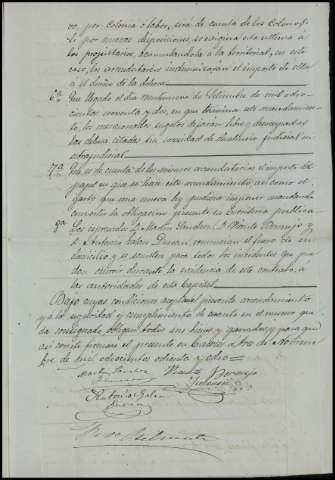 no, por colonia ó labor, será de cuenta de los colonos,
si por nuevas disposiciones, se exigiera esta última á
los propietarios, acumulandola á la territorial, en este
caso, los arrendatarios indemnizarán el importe de ella
a el dueño de la dehesa.
6ª Que llegado el dia veintinueve de Setiembre de mil ocho-
cientos noventa y dos, en que termina este arrendamien-
to, los mencionados sugetos dejarán libre y desocupada
la dehesa citada sin necesidad de desahucio judicial ni
extrajudicial
7ª Que es de cuenta de los mismos arrendatarios el importe del
papel en que se hace este arrendamiento, así como el
gasto que una nueva ley pudiera imponer mandando
convertir la obligacion presente en Escritura publica
8ª Los espresados D. Martin Sanchez, D. Naranjo y
D. Antonio Galan Duran, renuncian el fuero de su
domicilio y se someten para todos los incidentes que pue-
dan ocurrir durante la vigencia de este contrato, á
las autoridades de esta Capital
Bajo cuyas condiciones aceptan el presente arrendamiento
y á la seguridad y cumplimiento de cuanto en el mismo que-
da consignado obligan todos sus bienes y ganados y para que
así conste firmamos el presente en Cáceres á de Noviem-
bre de mil ochocientos ochenta y ocho =
Martin Sanchez
Naranjo
Antonio Galan
Duran